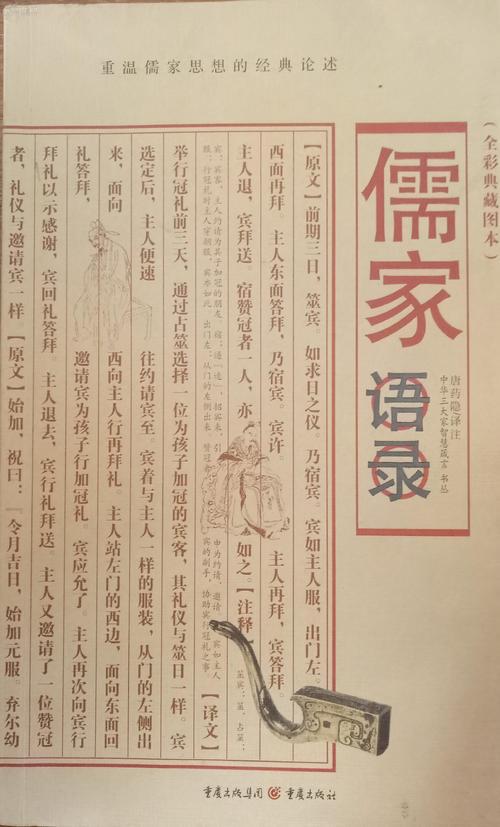 重温儒家思想的经典论述
（全彩典藏图本）
儒家
语录
唐药隐译注
中华三大家智慧箴言 书丛
【原文】前期三日，筮宾。如求日之仪。乃宿宾。宾如主人服，出门左。
西面再拜。主人东面答拜，乃宿宾。宾许。主人再拜，宾答拜。
主人退，宾拜送。宿赞冠者一人，亦如之。【注释】
筮宾：筮，占筮；
宾，宾客，主人约请为其子加冠的朋友
申为约请，邀请
宾如主人
出门左：从门的左侧出来
宾的副手，协助宾行冠礼之事。
【译文】
举行冠礼前三天，通过占筮选择一位为孩子加冠的宾客，其礼仪与筮日一样。宾
选定后，主人便速往约请宾至。宾着与主人一样的服装，从门的左侧出
来，面向西向主人行再拜礼。主人站左门的西边，面向东面回
礼答拜，邀请宾为孩子行加冠礼。宾应允了。主人再次向宾行
拜礼以示感谢，宾回礼答拜。主人退去，宾行礼拜送。主人又邀请了一位赞冠
者，礼仪与邀请宾一样【原文】始加，祝曰：“令月吉日，始加元服。弃尔幼
重庆出版集团 重庆出版社